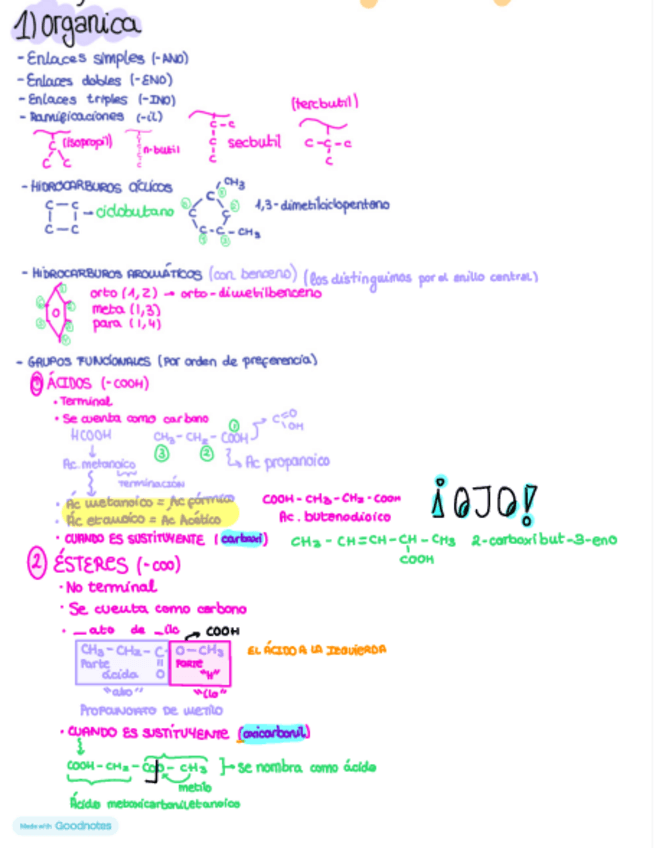 1) organica
- Enlaces simples (-ANO)
- Enlaces dobles (-ENO)
- Enlaces triples (-INO)
- Ramificaciones (-il)
(isopropil)
n-butil
secbutil
(tercbutil)
C
C C
C-C
C
C
C-C-C
C
- HIDROCARBUROS CÍCLICOS
C-C
C-C
→ ciclobutano
CH3
C
C C
C-C-CH3
1,3-dimetilciclopentano
- HIDROCARBUROS AROMÁTICOS (con benceno) (los distinguimos por el anillo central)
orto (1,2) → orto-dimetilbenceno
meta (1,3)
para (1,4)
- GRUPOS FUNCIONALES (Por orden de preferencia)
① ÁCIDOS (-COOH)
• Terminal
• Se cuenta como carbono
HCOOH
CH3-CH2-COOH
C=O
OH
③ ② ①
Ac. metanoico
Ac propanoico
terminación
• Ác metanoico = Ac fórmico
• Ác etanoico = Ac Acético
COOH-CH2-CH2-COOH
Ac. butanodioico
¡OJO!
• CUANDO ES SUSTITUYENTE (carboxi)
CH3-CH=CH-CH-CH3 2-carboxi but-3-eno
COOH
② ÉSTERES (-COO)
• No terminal
• Se cuenta como carbono
• _ato de _ilo
COOH
CH3-CH2-C-O-CH3
Parte
ácida
O
PARTE
"H"
"ato"
"ilo"
EL ÁCIDO A LA IZQUIERDA
PROPANOATO DE METILO
• CUANDO ES SUSTITUYENTE (oxicarbonil)
COOH-CH2-COO-CH3 }→ se nombra como ácido
metilo
Ácido metoxicarboniletanoico
Made with Goodnotes